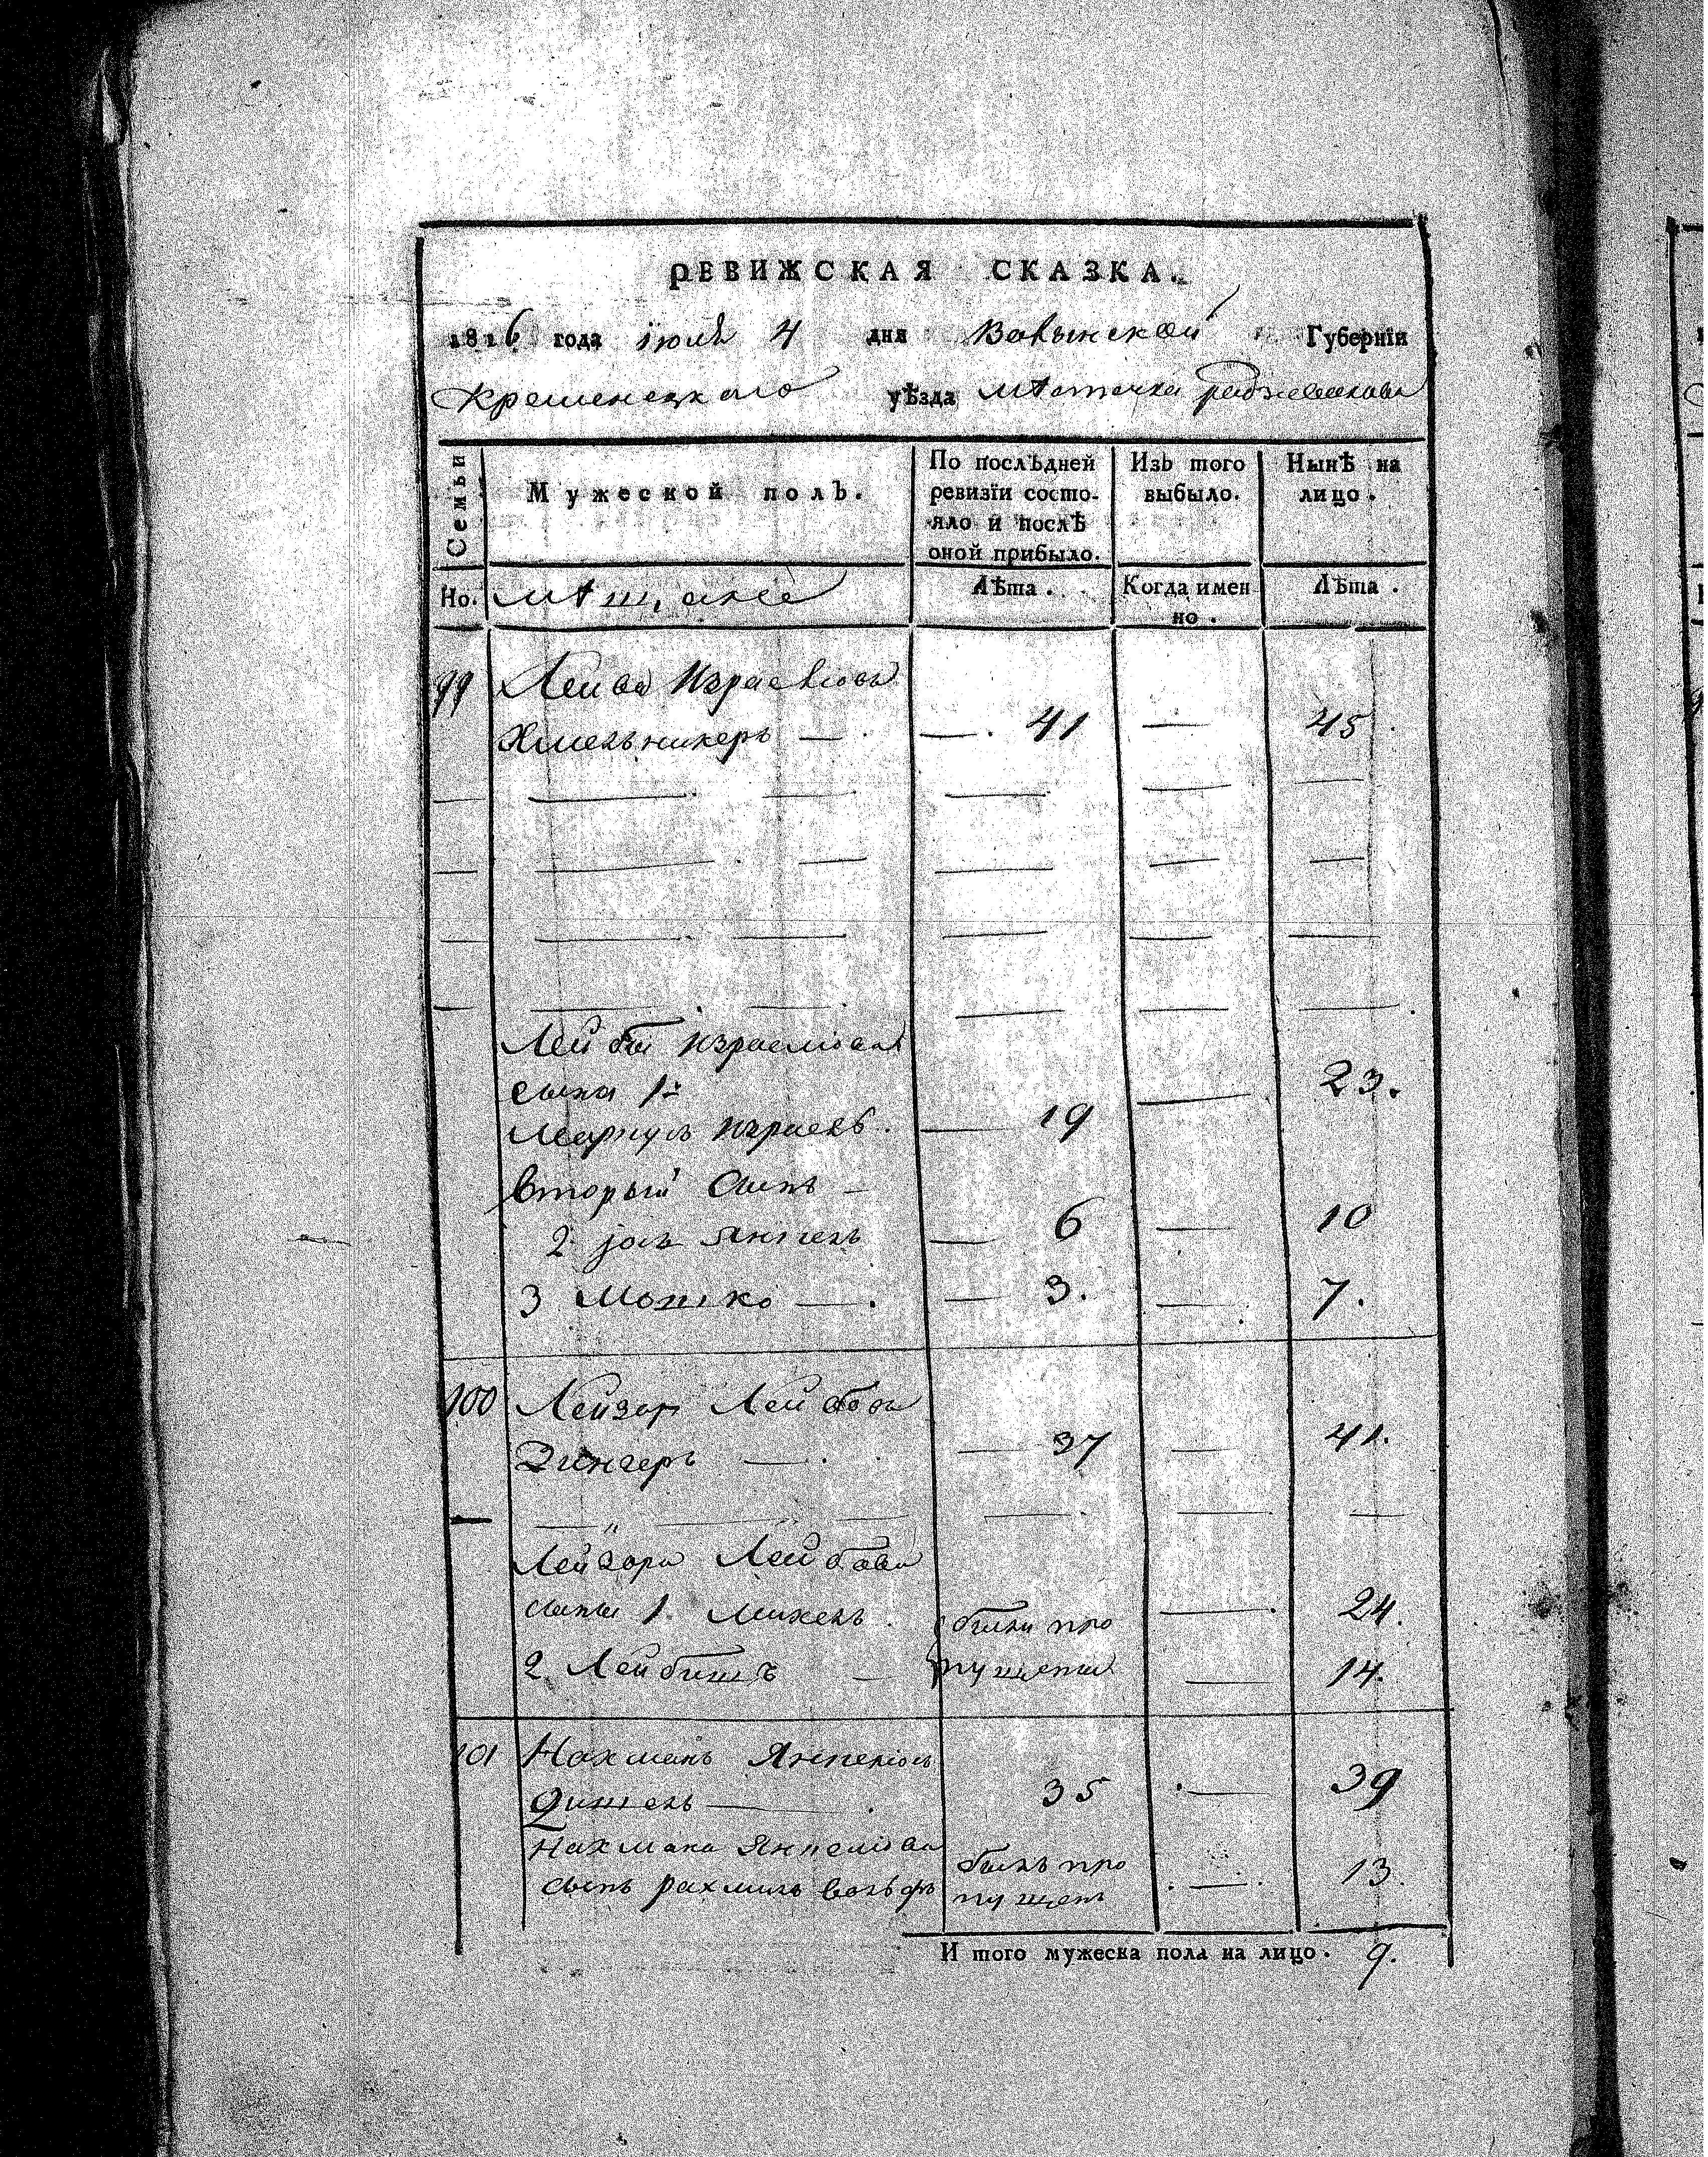 РЕВИЖСКАЯ СКАЗКА.
1816 года июля 4 дня Волынской Губернїи
Кременецкаго уѣзда мѣстечка радзивилова
Семьи
Мужеской полъ.
По послѣдней ревизїи состояло и послѣ оной прибыло.
Изъ того выбыло.
Нынѣ на лицо.
Но. мѣщане Лѣта. Когда имен но. Лѣта.
99 Лейба Израелiовъ
Хмельникеръ — — 41 — 45
Лейбы Израелiова
сына 1й — 23.
Меркулъ Израель. — 19
вторый сынъ —
2 Янкель — 6 — 10
3 Мошко — — 3. — 7.
100 Лейзор Лейбовъ
Зингеръ — — 37 — 41.
Лейзора Лейбова
сыны 1. Михель. были про — 24.
2. Лейбишъ — пущены — 14.
101 Нахманъ Янкелiовъ
— 35 — 39
Нахмана Янкелiова
сынъ рахмиль вольфъ былъ про пущенъ — 13.
И того мужеска пола на лицо. 9.